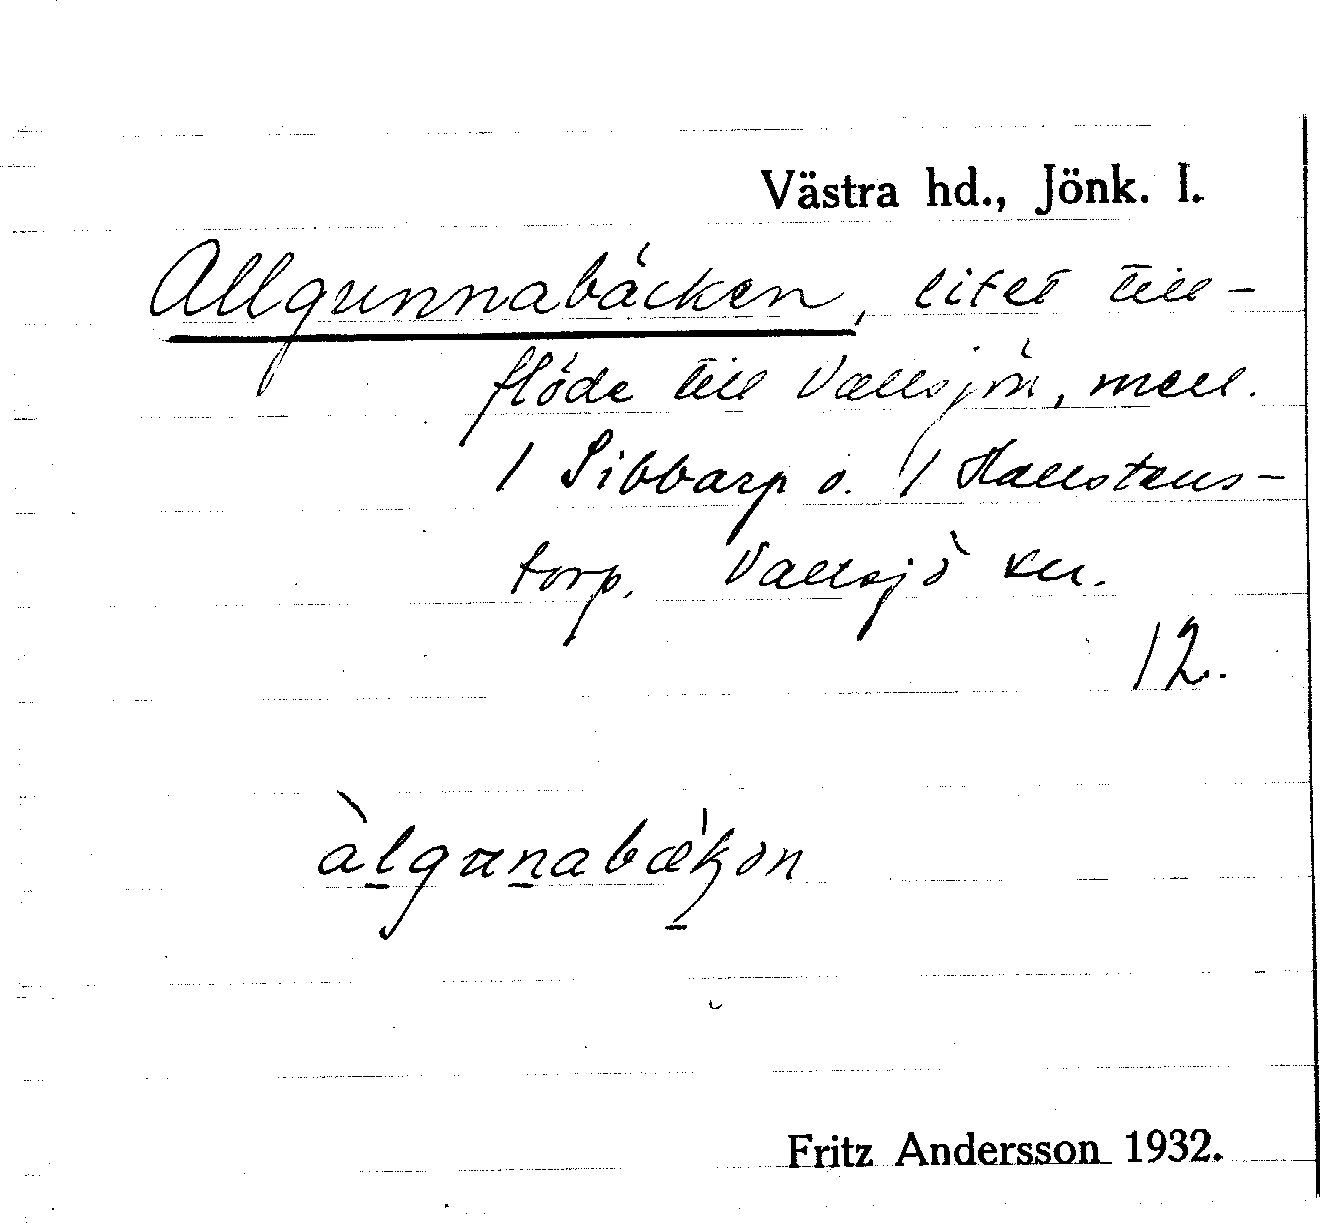 Västra hd., Jönk. l.
Allgunnabäcken, litet till-
flöde till Vallsjön, mell.
/ Sibbarp o. / Hallstens-
torp. Vallsjö sn.
12.
àlgunabækən
Fritz Andersson 1932.